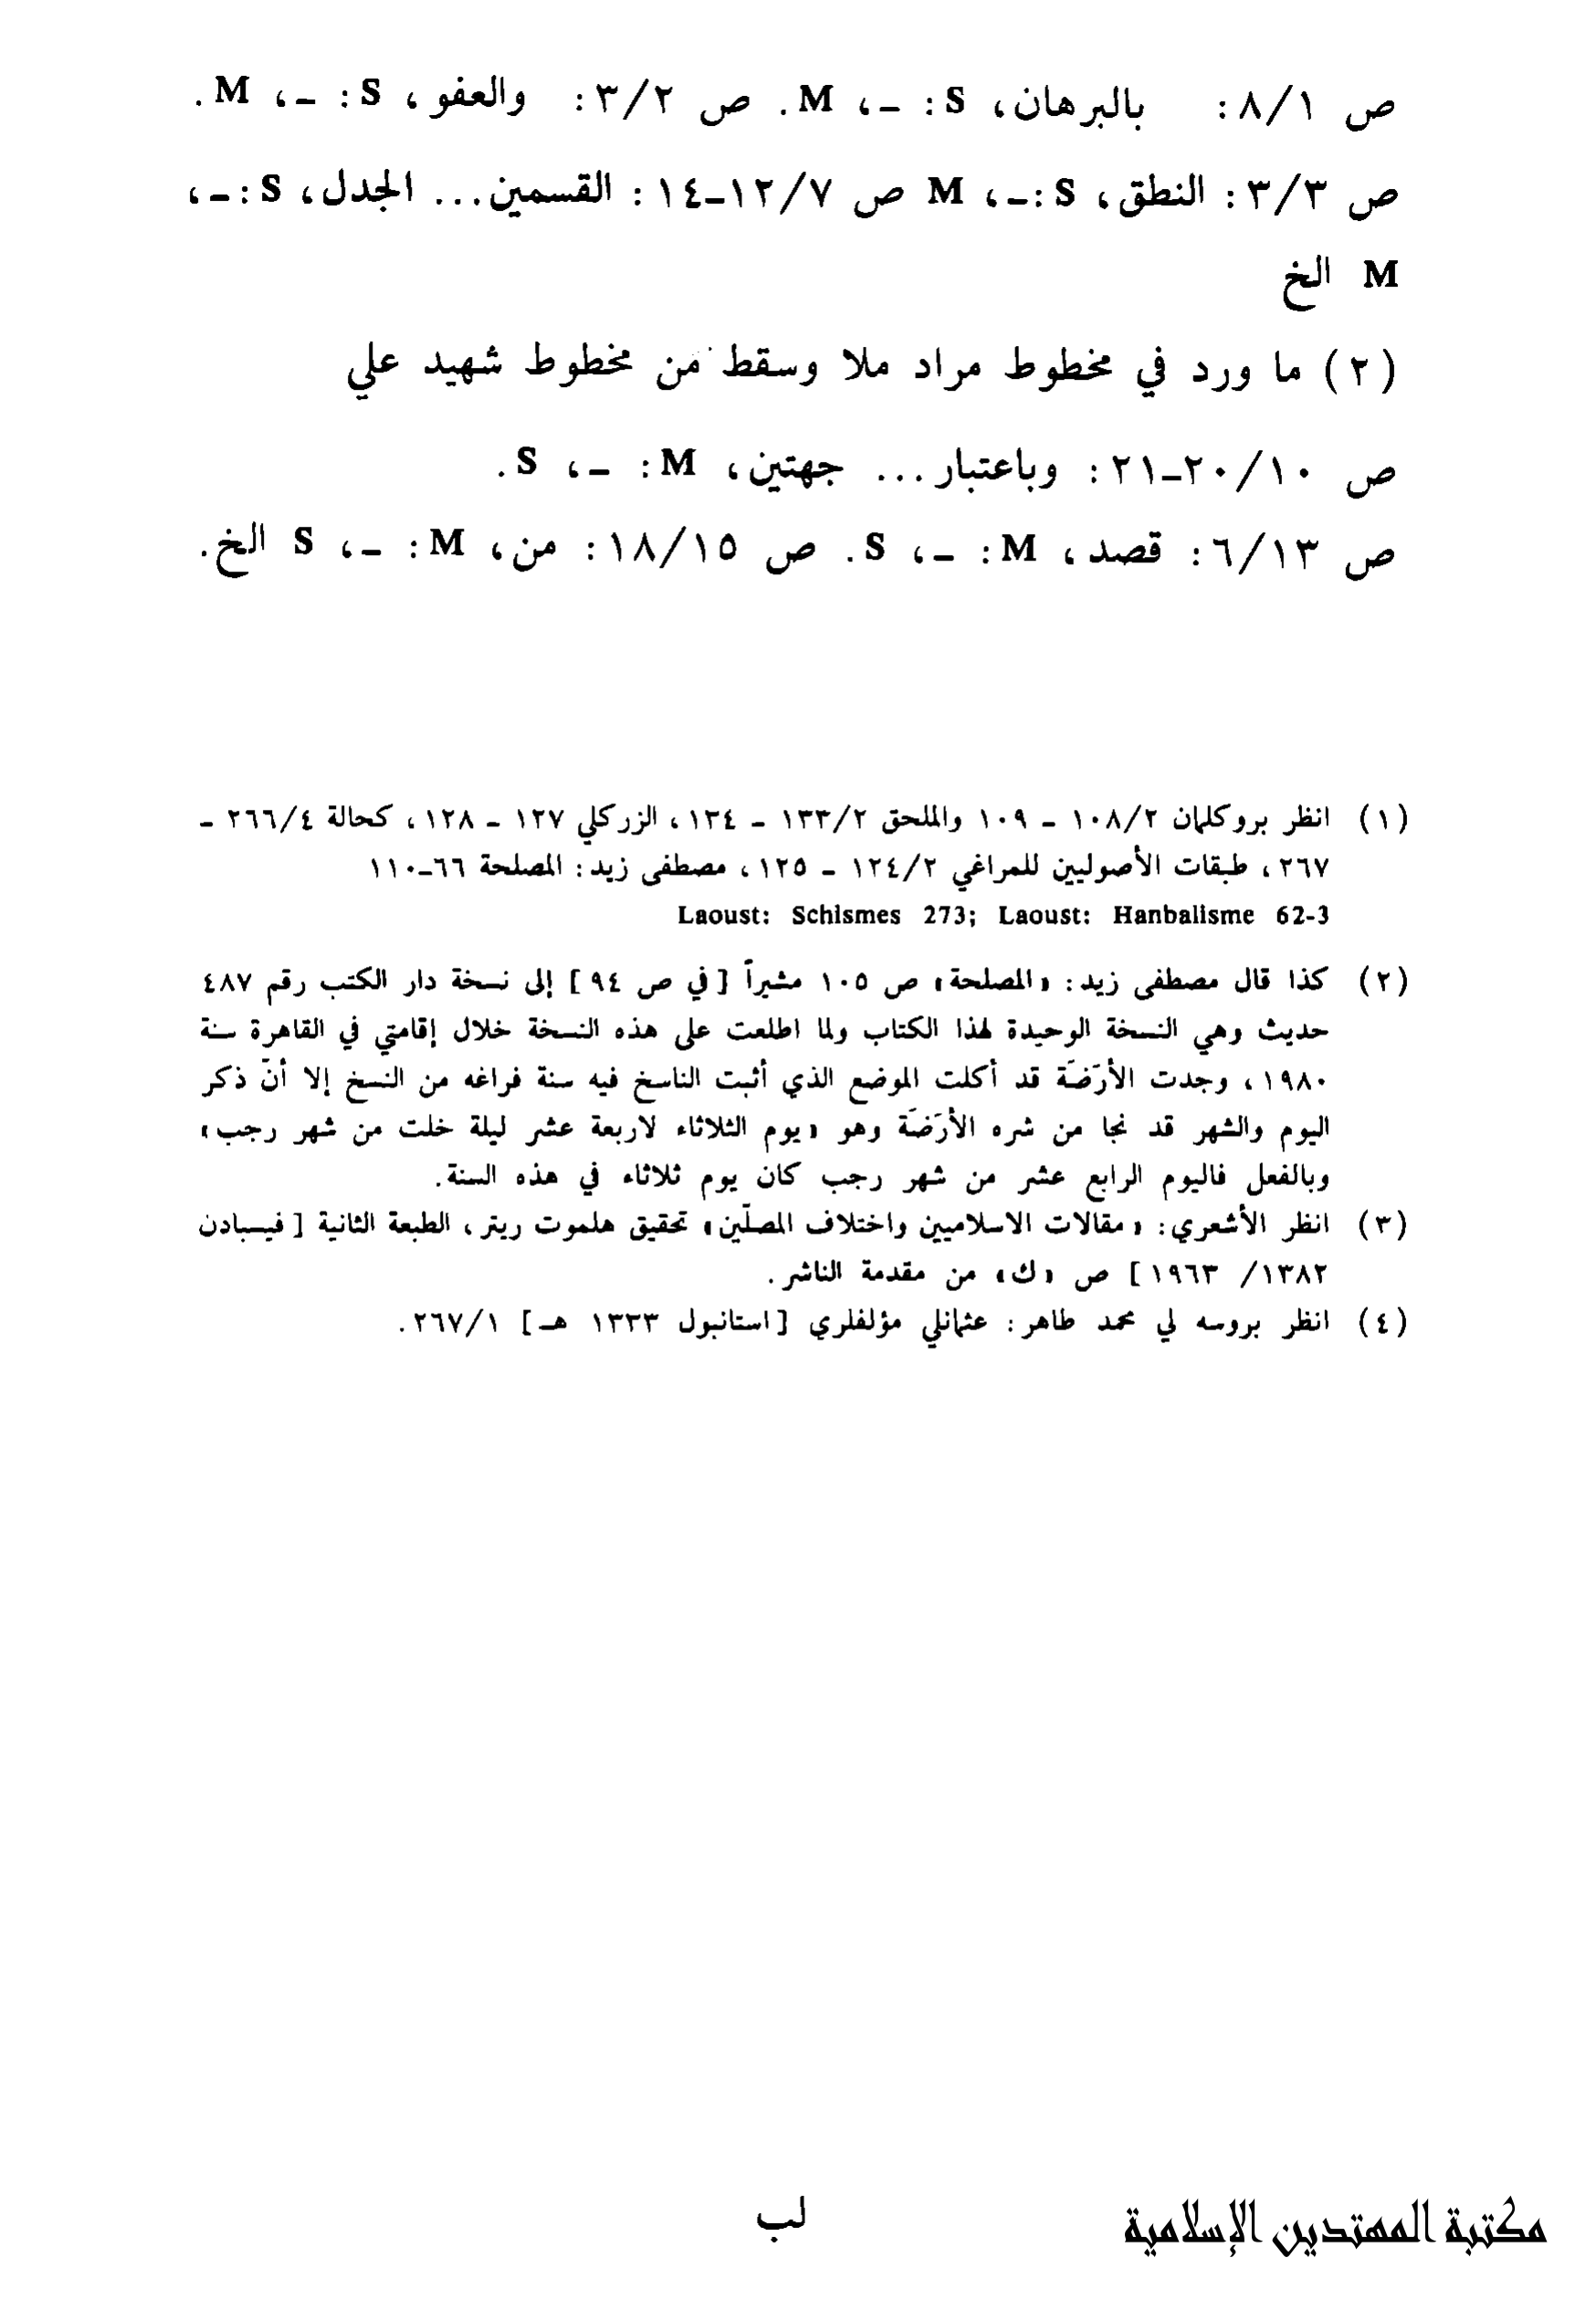 ص ٨/١: بالبرهان، S: ـ، M. ص ٣/٢: والعفو، S: ـ، M.
ص ٣/٣: النطق، S:ـ، M ص ١٢/٧ـ١٤: القسمين... الجدل، S:ـ،
M الخ
(٢) ما ورد في مخطوط مراد ملا وسقط من مخطوط شهيد علي
ص ٢٠/١٠ـ٢١: وباعتبار... جهتين، M: ـ، S.
ص ٦/١٣: قصد، M: ـ، S. ص ١٨/١٥: من، M: ـ، S الخ.
(١) انظر بروكلمان ١٠٨/٢ ـ ١٠٩ والملحق ١٣٣/٢ ـ ١٣٤، الزركلي ١٢٧ ـ ١٢٨، كحالة ٢٦٦/٤ ـ
٢٦٧، طبقات الأصوليين للمراغي ١٢٤/٢ ـ ١٢٥، مصطفى زيد: المصلحة ٦٦ـ١١٠
Laoust: Schismes 273; Laoust: Hanbalisme 62-3
(٢) كذا قال مصطفى زيد: «المصلحة» ص ١٠٥ مشيراً [في ص ٩٤] إلى نسخة دار الكتب رقم ٤٨٧
حديث وهي النسخة الوحيدة لهذا الكتاب ولما اطلعت على هذه النسخة خلال إقامتي في القاهرة سنة
١٩٨٠، وجدت الأرَضَة قد أكلت الموضع الذي أثبت الناسخ فيه سنة فراغه من النسخ إلا أنّ ذكر
اليوم والشهر قد نجا من شره الأرَضَة وهو «يوم الثلاثاء لاربعة عشر ليلة خلت من شهر رجب»
وبالفعل فاليوم الرابع عشر من شهر رجب كان يوم ثلاثاء في هذه السنة.
(٣) انظر الأشعري: «مقالات الاسلاميين واختلاف المصلّين» تحقيق هلموت ريتر، الطبعة الثانية [فيسبادن
١٣٨٢/ ١٩٦٣] ص «ك» من مقدمة الناشر.
(٤) انظر بروسه لي محمد طاهر: عثمانلي مؤلفلري [استانبول ١٣٣٣ هـ] ٢٦٧/١.
لب
مكتبة المهتدين الإسلامية